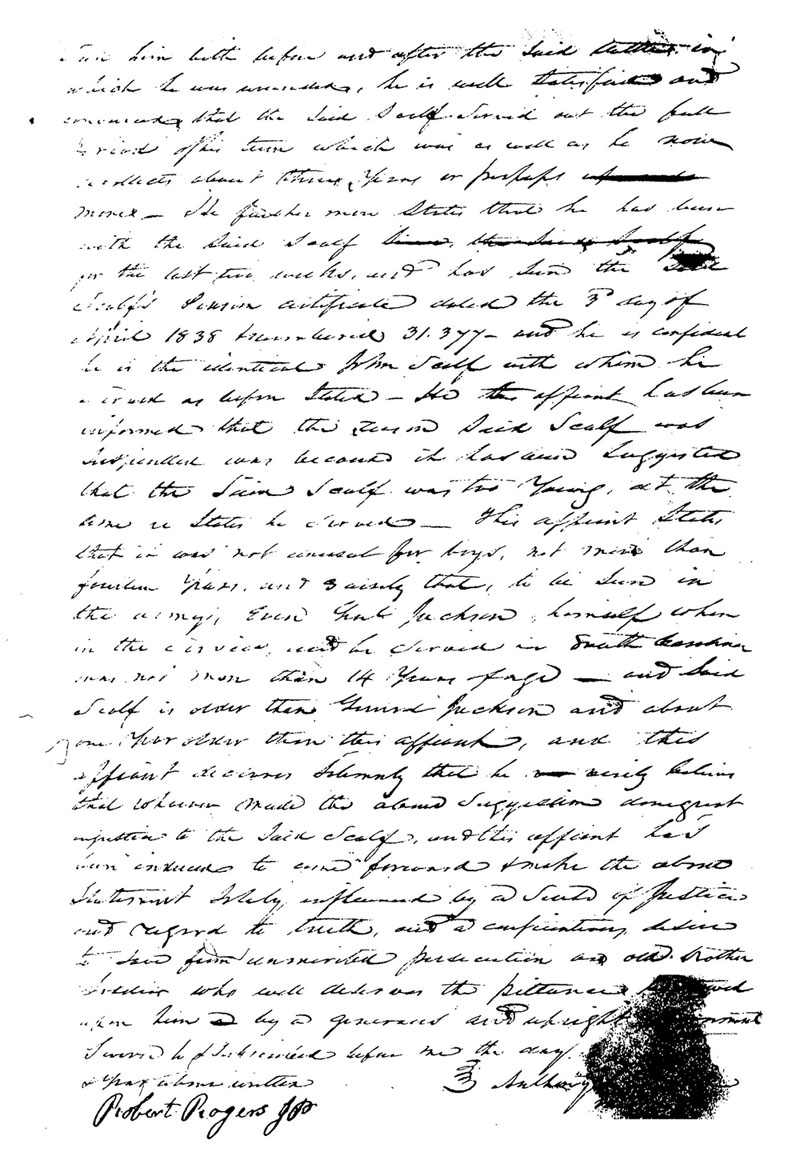 him both before and after the said battle in
which he was wounded, he is well satisfied and
convinced that the said Scalf served out the full
period of his term which was as well as he now
recollects about three years or perhaps
more – He further more States that he has been
with the said Scalf
for the last two weeks, and has seen the said
Scalf's Pension certificate dated the 3d day of
April 1838 numbered 31.377 – and he is confident
he is the identical John Scalf with whom he
served as before stated – He this affiant has been
informed that the reason said Scalf was
suspended was because it has been suggested
that the said Scalf was too young, at the
time he States he served – This affiant States
that it was not unusual for boys, not more than
fourteen years, and that, to be seen in
the army, Even Genl Jackson, himself when
in the service, and he served in South Carolina
was not more than 14 Years of age – and said
Scalf is older than General Jackson and about
one year older than this affiant, and this
affiant declares solemnly that he verily believes
that whoever made the above suggestion done great
injustice to the said Scalf, and this affiant has
been induced to come forward & make the above
statement solely influenced by a sense of Justice
and regard to truth, and a conscientious desire
to save from unmerited persecution an old brother
soldier who well deserves the pittance
upon him by a generous and upright
Sworn to & subscribed before me the day
& year above written Anthony
Robert Rogers JP